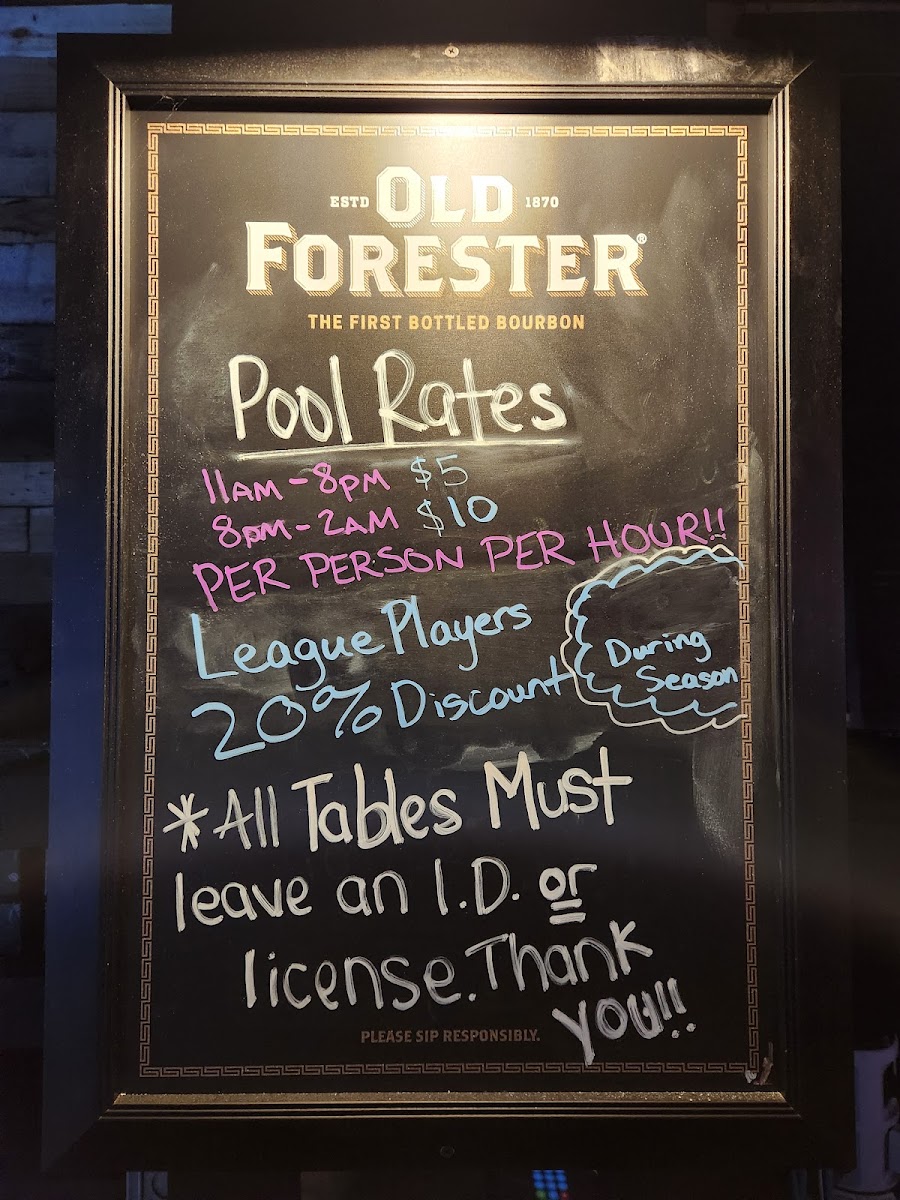 ESTD OLD 1870
FORESTER®
THE FIRST BOTTLED BOURBON
Pool Rates
11AM - 8PM $5
8PM - 2AM $10
PER PERSON PER HOUR!!
League Players
20% Discount
During
Season
*All Tables Must
leave an I.D. or
license. Thank
you!!
PLEASE SIP RESPONSIBLY.